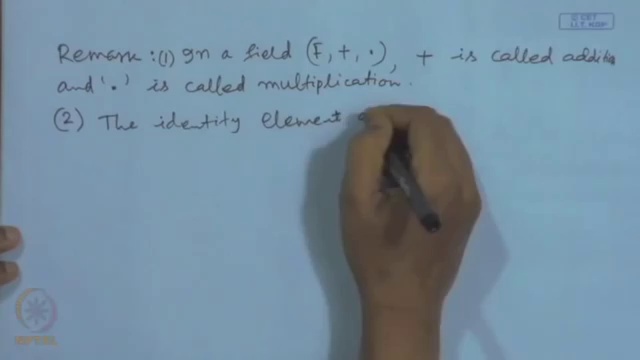 © CET
I.I.T. KGP
Remark : (1) In a field (F, +, ·), + is called addition
and '·' is called multiplication.
(2) The identity element
NPTEL